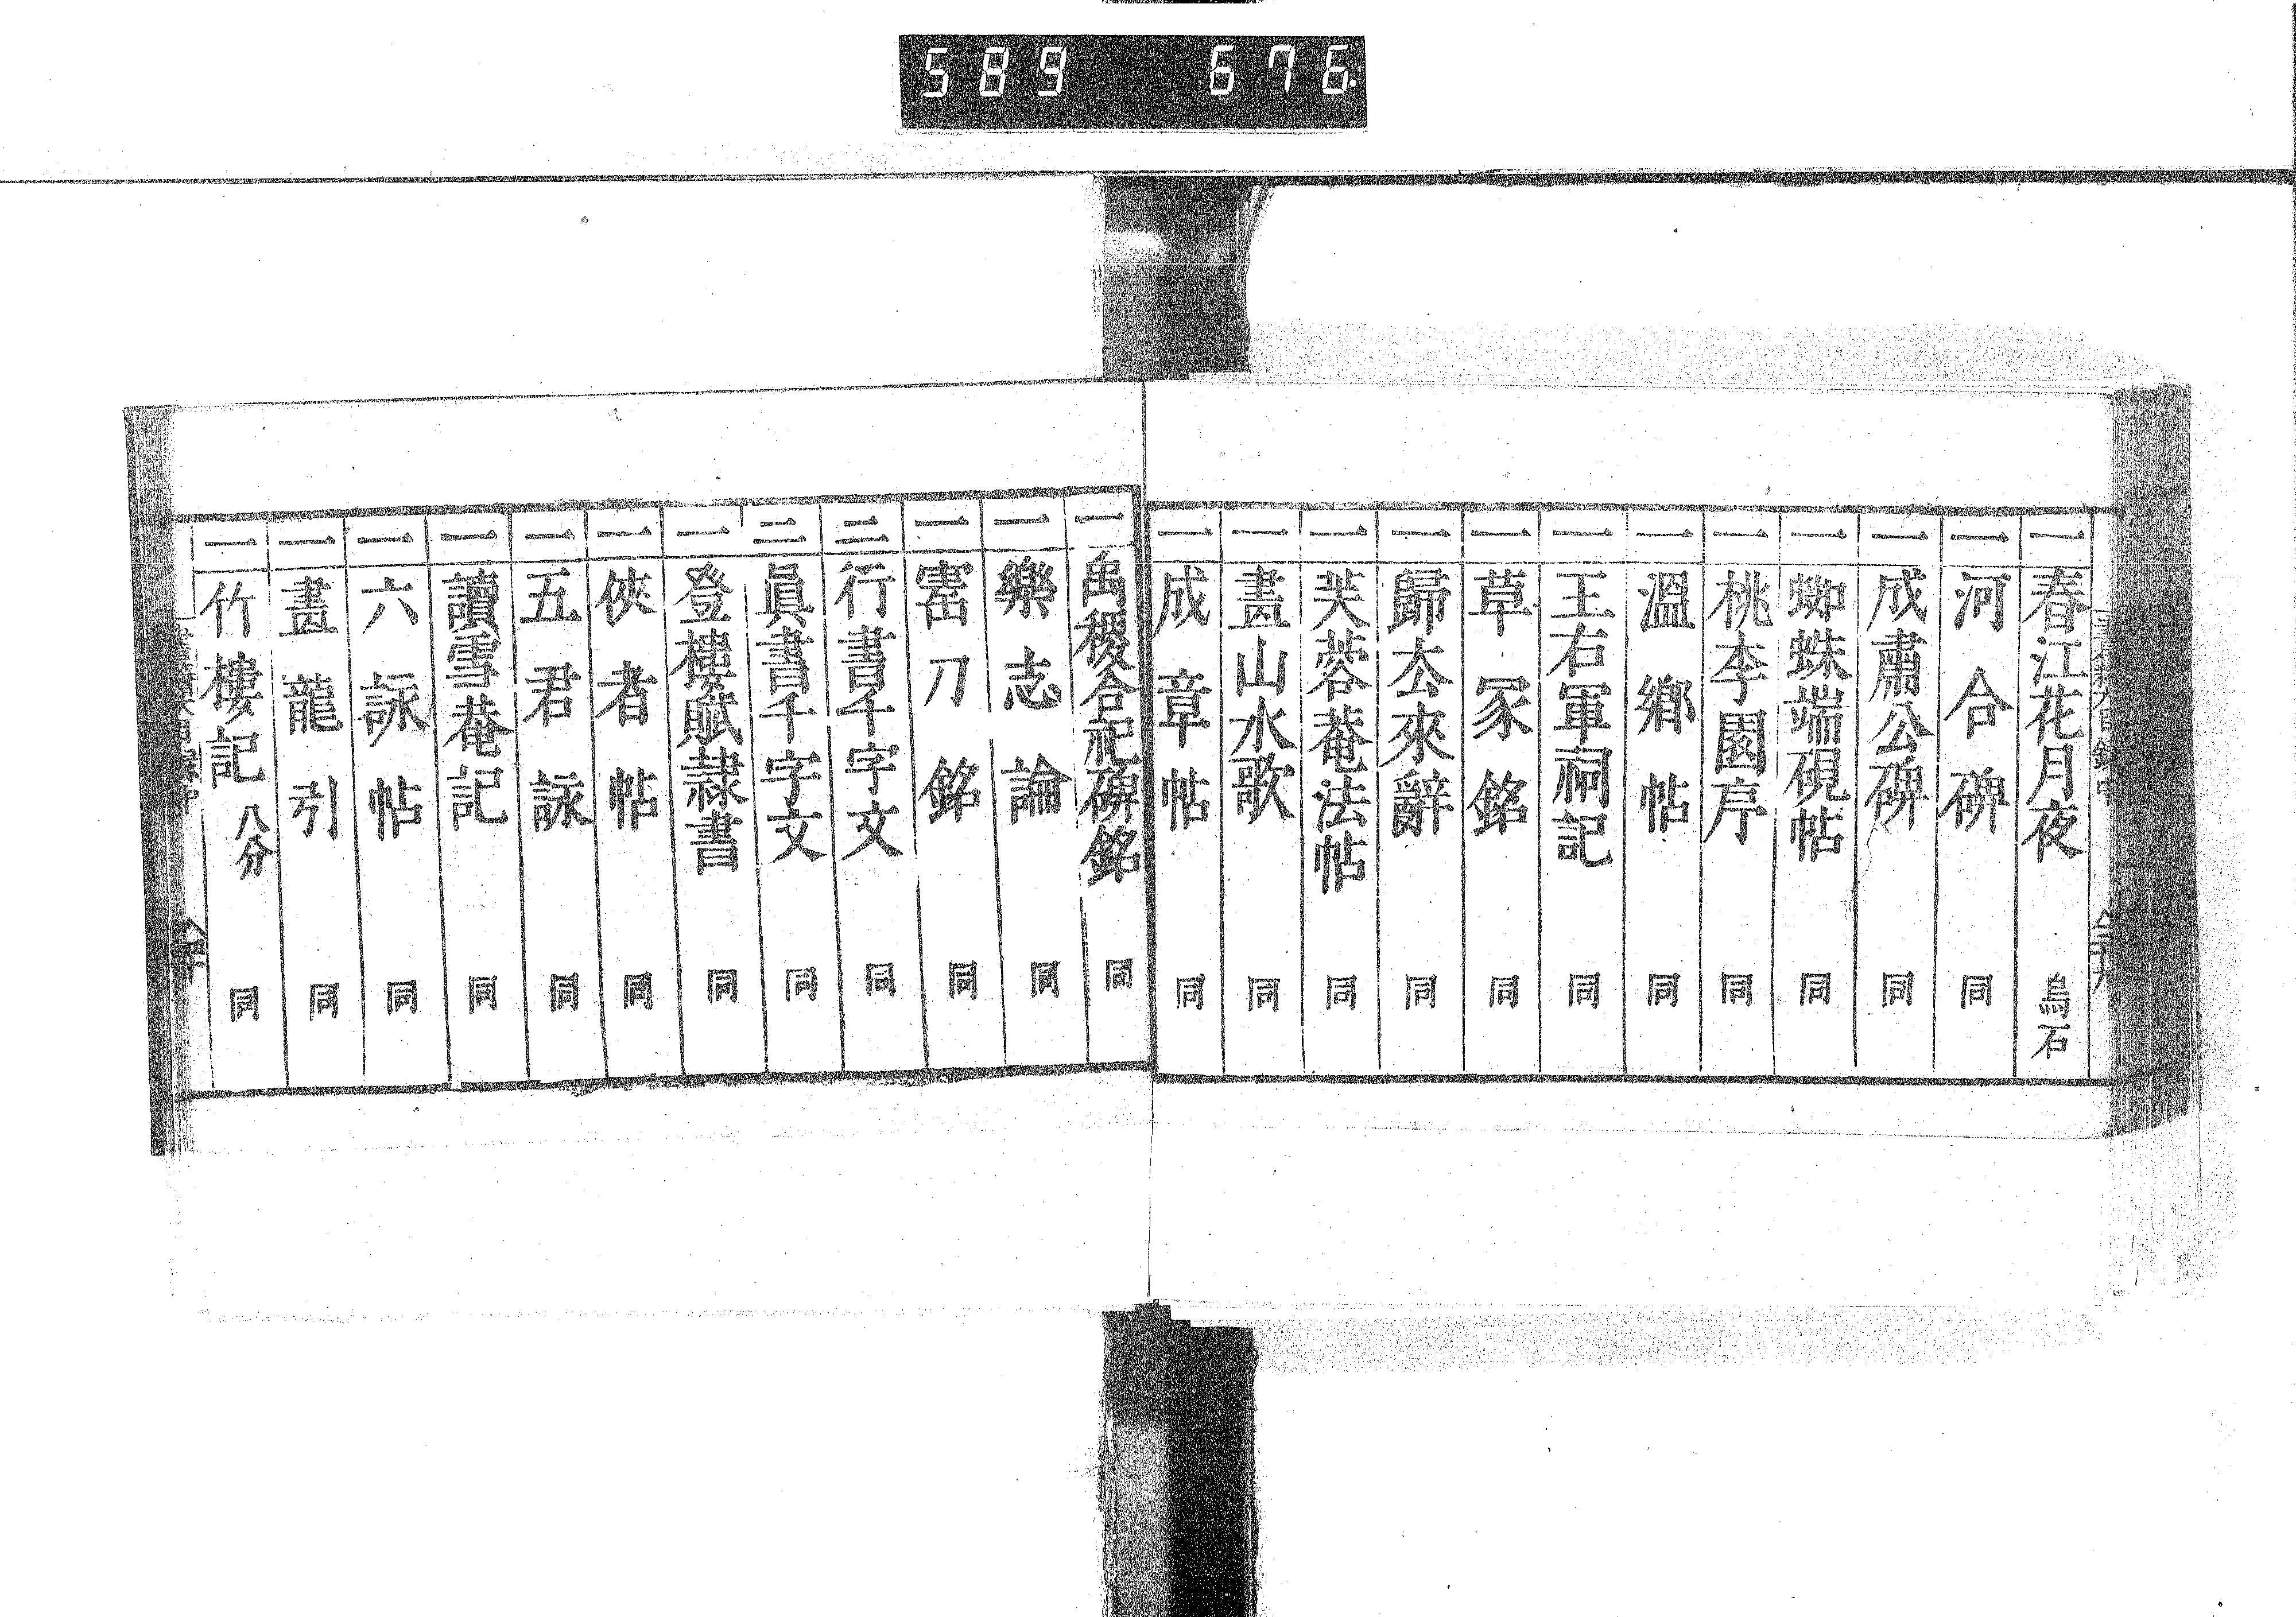 589 676.
一 春江花月夜 烏石
一 河合碑 同
一 成肅公碑 同
一 蜘蛛端硯帖 同
一 桃李園序 同
一 溫鄉帖 同
一 王右軍祠記 同
一 草冢銘 同
一 歸去來辭 同
一 芙蓉菴法帖 同
一 畫山水歌 同
一 成章帖 同
一 禹稷合祀碑銘 同
一 樂志論 同
一 窰刀銘 同
二 行書千字文 同
二 眞書千字文 同
一 登樓賦隷書 同
一 俠者帖 同
一 五君詠 同
一 讀雪菴記 同
一 六詠帖 同
一 畫龍引 同
一 竹樓記 八分 同